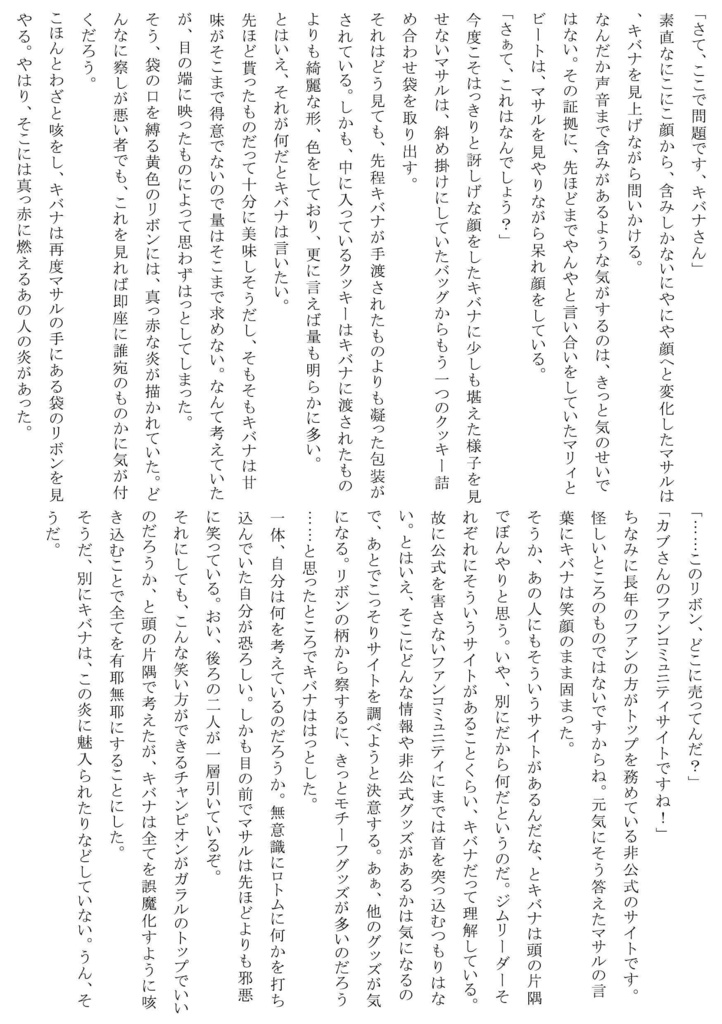 「さて、ここで問題です、キバナさん」
素直なにこにこ顔から、含みしかないにやにや顔へと変化したマサルは
、キバナを見上げながら問いかける。
なんだか声音まで含みがあるような気がするのは、きっと気のせいで
はない。その証拠に、先ほどまでやんやと言い合いをしていたマリィと
ビートは、マサルを見やりながら呆れ顔をしている。
「さぁて、これはなんでしょう？」
今度こそはっきりと訝しげな顔をしたキバナに少しも堪えた様子を見
せないマサルは、斜め掛けにしていたバッグからもう一つのクッキー詰
め合わせ袋を取り出す。
それはどう見ても、先程キバナが手渡されたものよりも凝った包装が
されている。しかも、中に入っているクッキーはキバナに渡されたもの
よりも綺麗な形、色をしており、更に言えば量も明らかに多い。
とはいえ、それが何だとキバナは言いたい。
先ほど貰ったものだって十分に美味しそうだし、そもそもキバナは甘
味がそこまで得意でないので量はそこまで求めない。なんて考えていた
が、目の端に映ったものによって思わずはっとしてしまった。
そう、袋の口を縛る黄色のリボンには、真っ赤な炎が描かれていた。ど
んなに察しが悪い者でも、これを見れば即座に誰宛のものかに気が付
くだろう。
こほんとわざと咳をし、キバナは再度マサルの手にある袋のリボンを見
やる。やはり、そこには真っ赤に燃えるあの人の炎があった。
「……このリボン、どこに売ってんだ？」
「カブさんのファンコミュニティサイトですね！」
ちなみに長年のファンの方がトップを務めている非公式のサイトです。
怪しいところのものではないですからね。元気にそう答えたマサルの言
葉にキバナは笑顔のまま固まった。
そうか、あの人にもそういうサイトがあるんだな、とキバナは頭の片隅
でぼんやりと思う。いや、別にだから何だというのだ。ジムリーダーそ
れぞれにそういうサイトがあることくらい、キバナだって理解している。
故に公式を害さないファンコミュニティにまでは首を突っ込むつもりはな
い。とはいえ、そこにどんな情報や非公式グッズがあるかは気になるの
で、あとでこっそりサイトを調べようと決意する。あぁ、他のグッズが気
になる。リボンの柄から察するに、きっとモチーフグッズが多いのだろう
……と思ったところでキバナははっとした。
一体、自分は何を考えているのだろうか。無意識にロトムに何かを打ち
込んでいた自分が恐ろしい。しかも目の前でマサルは先ほどよりも邪悪
に笑っている。おい、後ろの二人が一層引いているぞ。
それにしても、こんな笑い方ができるチャンピオンがガラルのトップでいい
のだろうか、と頭の片隅で考えたが、キバナは全てを誤魔化すように咳
き込むことで全てを有耶無耶にすることにした。
そうだ、別にキバナは、この炎に魅入られたりなどしていない。うん、そ
うだ。